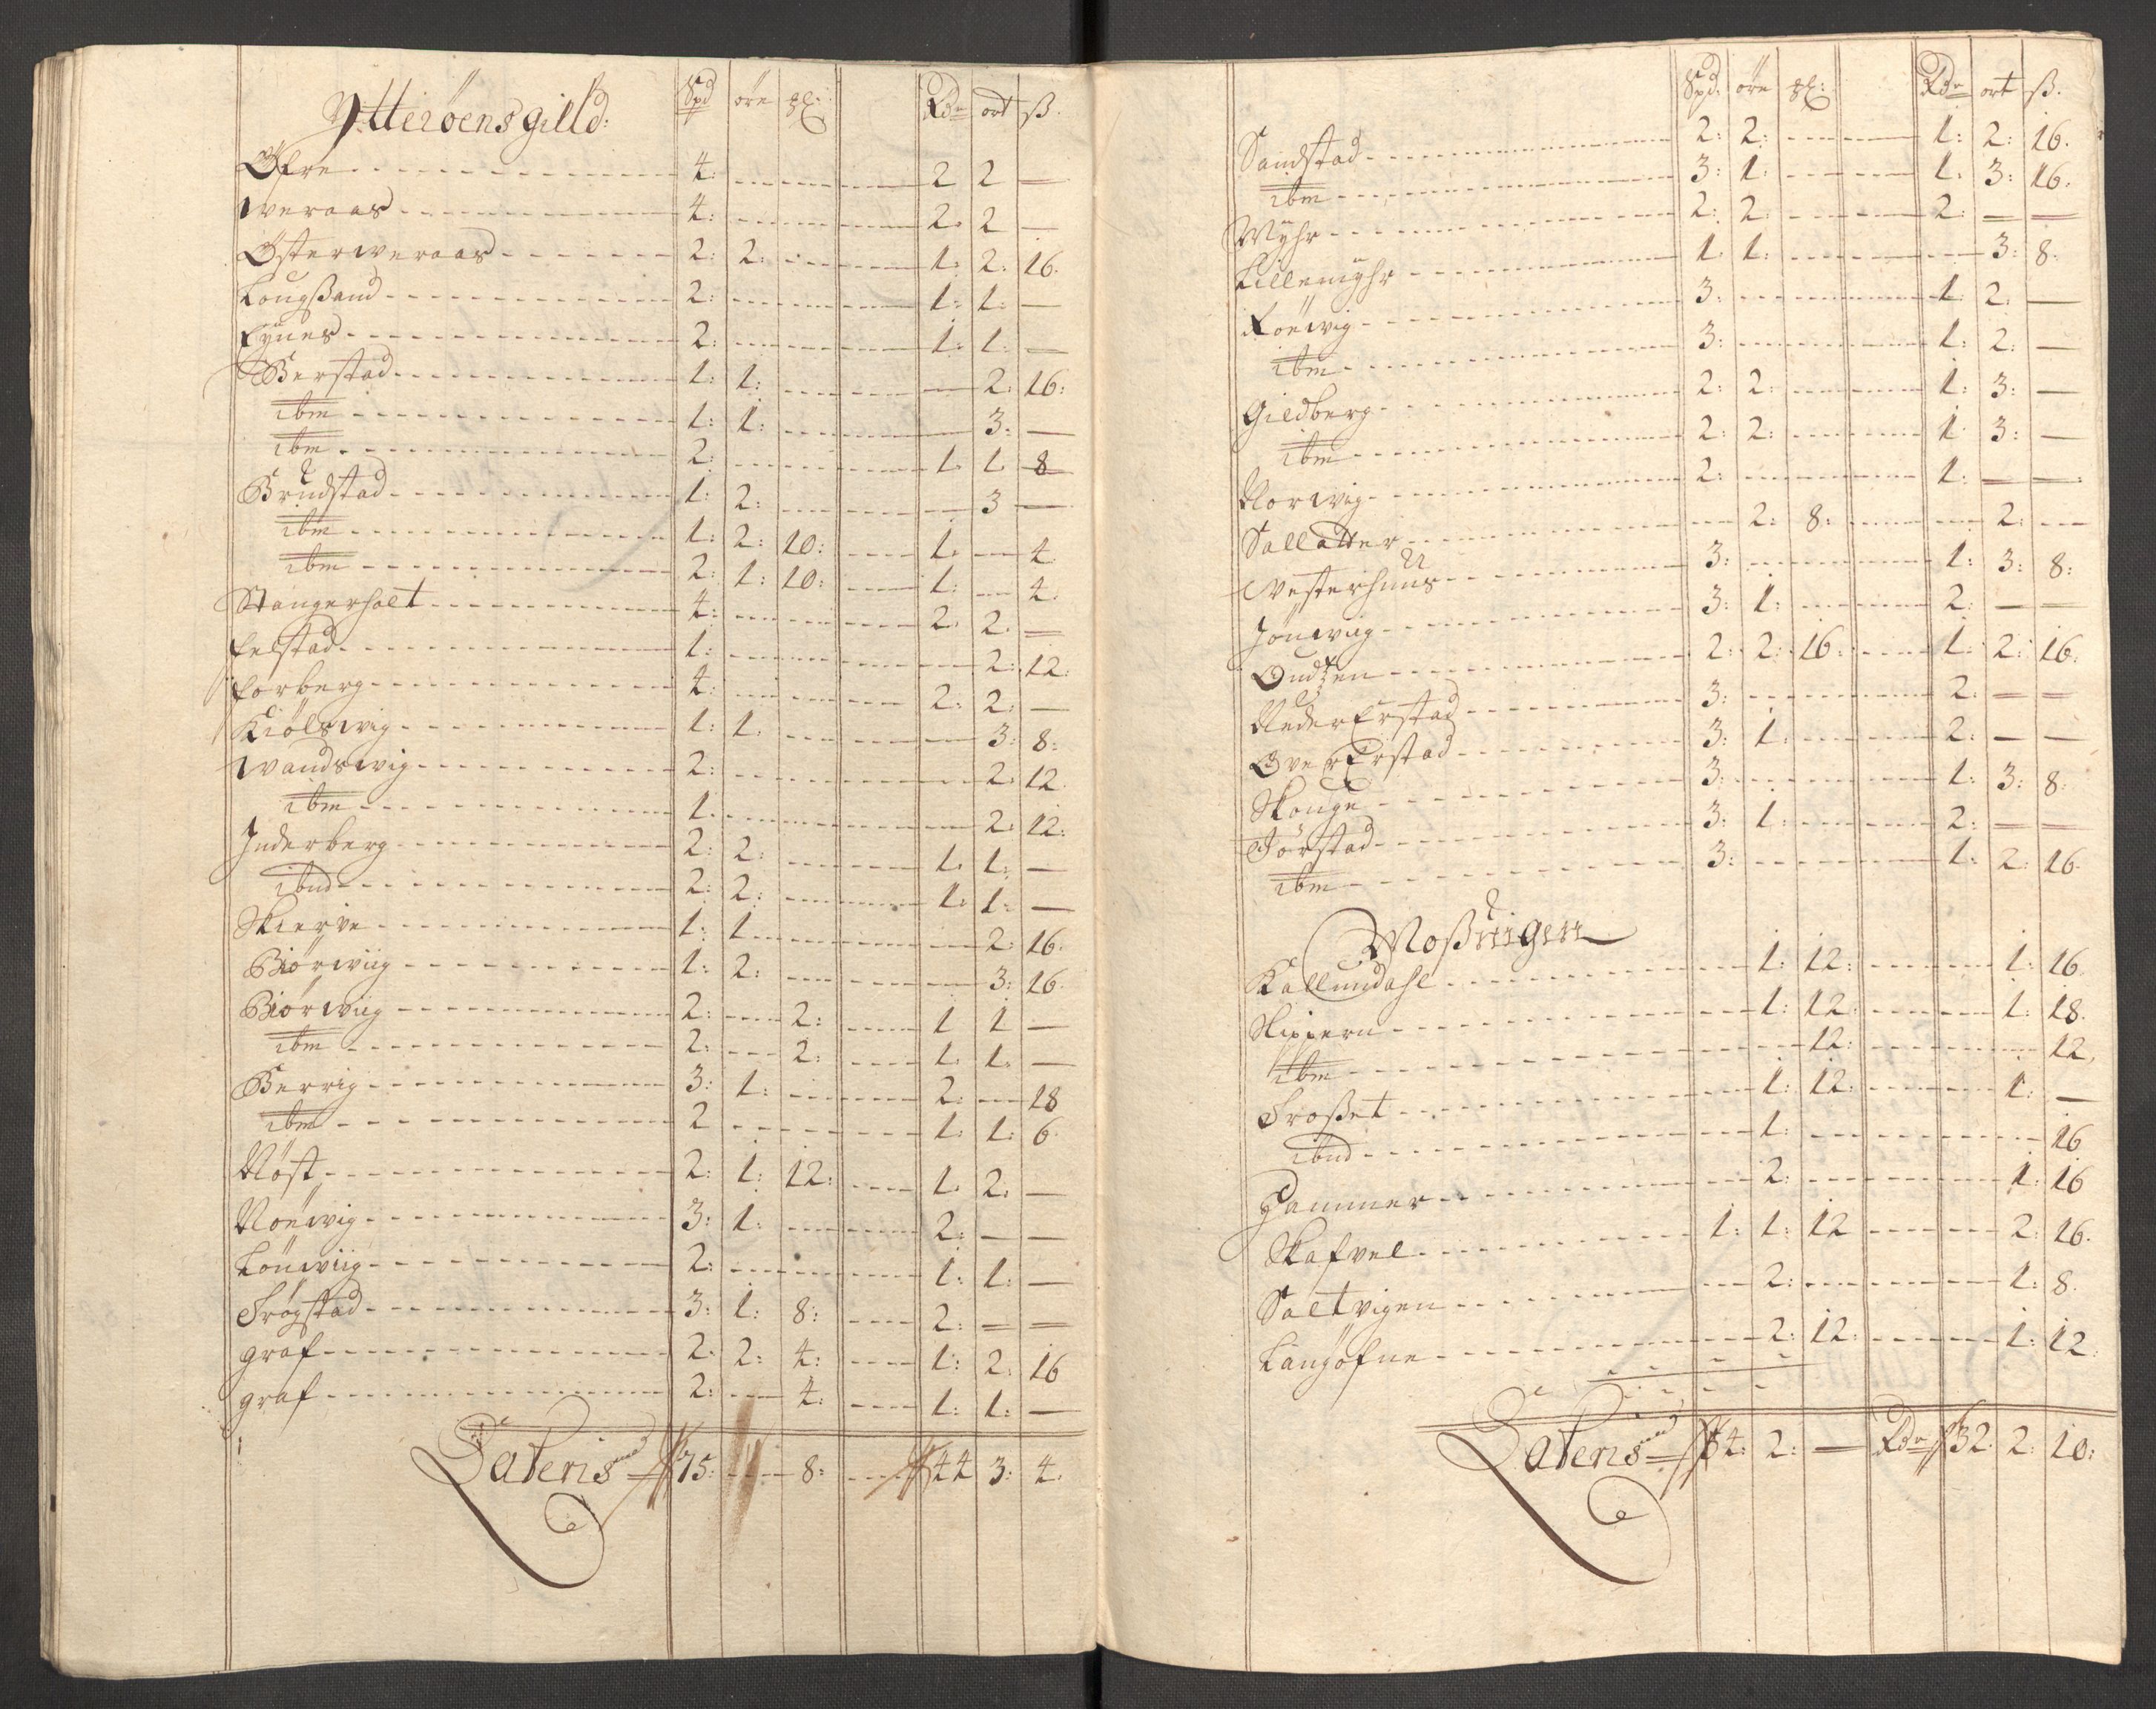 Ytterøens gilld: Spd øre gl: Rdr ort ß.
Øfre 4: 2 2 —
Weraas 4: 2. 2 —
Østerweraas 2: 2: 1: 2: 16.
Lougßand 2: 1: 1: —
Eynes 2: 1: 1: —
Berstad 1: 1: — 2: 16:
ibm 1: 1: — 3: —
ibm 2: 1. 1. 8
Brudstad 1: 2: — 3 —
ibm 1: 2: 10: 1. — 4
ibm 2: 1: 10: 1: — 4.
Stangerholt 4: 2. 2. —
Felstad 1: 2: 12:
Forberg 4: 2: 2: —
Kiølswig 1: 1. — 3: 8:
Wandswig 2: 2: 12.
ibm 1. — 2. 12:
Inderberg 2: 2: 1. 1: —
ibnd 2: 2: 1. 1: —
Skierve 1: 1 — 2: 16.
Biørwiig 1: 2: — 3: 16.
Biørwiig 2: — 2: 1 1 —
ibm 2: — 2: 1. 1. —
Berrig 3: 1: 2: — 18
ibm 2 1: 1: 6.
Nøst 2: 1: 12: 1. 2. —
Noewig 3: 1: 2: — —
Lønwiig 2: 1: 1: —
Frøgstad 3: 1: 8: 2: — —
graf 2: 2: 4: 1: 2: 16
graf 2: — 4: 1: 1: —
Lateris 75: — 8: 44 3: 4.
Spd: øre gl: Rdr ort ß.
Sandstad 2: 2: 1: 2: 16.
ibm 3: 1: 1. 3: 16.
Myhr 2: 2. 2: — —
Lillemyhr 1: 1: — 3: 8.
Roewig 3: 1: 2: —
ibm 3: 1: 2: —
Gieldberg 2: 2: 1: 3: —
ibm 2: 2: 1 3: —
Norwig 2: 1: — —
Sallatter — 2: 8: — 2: —
Westerhuus 3: 1: 3: 8:
Jønwiig 3: 1: 2: — —
Oudzen 2: 2: 16: 1: 2: 16:
Neder Erstad 3: 2: — —
Over Erstad 3: 1: 2: — —
Skouge 3: 1: 3: 8:
Tørstad 3: 1: 2: — —
ibm 3: 1: 2: 16.
Moßuigen
Kallundahl — 1: 12: — 1: 16.
Skiern — 1: 12. — 1: 18.
ibm — 12: — 12.
Froßet — 1: 12: — 1: —
ibnd — 1: — 16
Hammer — 2: — 1: 16
Skafvel 1: 1: 12 — 2: 16.
Saltvigen — 2: — 1: 8.
Langøfne — 2: 12: — 1: 12.
Lateris 54: 2: — Rdr 32: 2: 10: